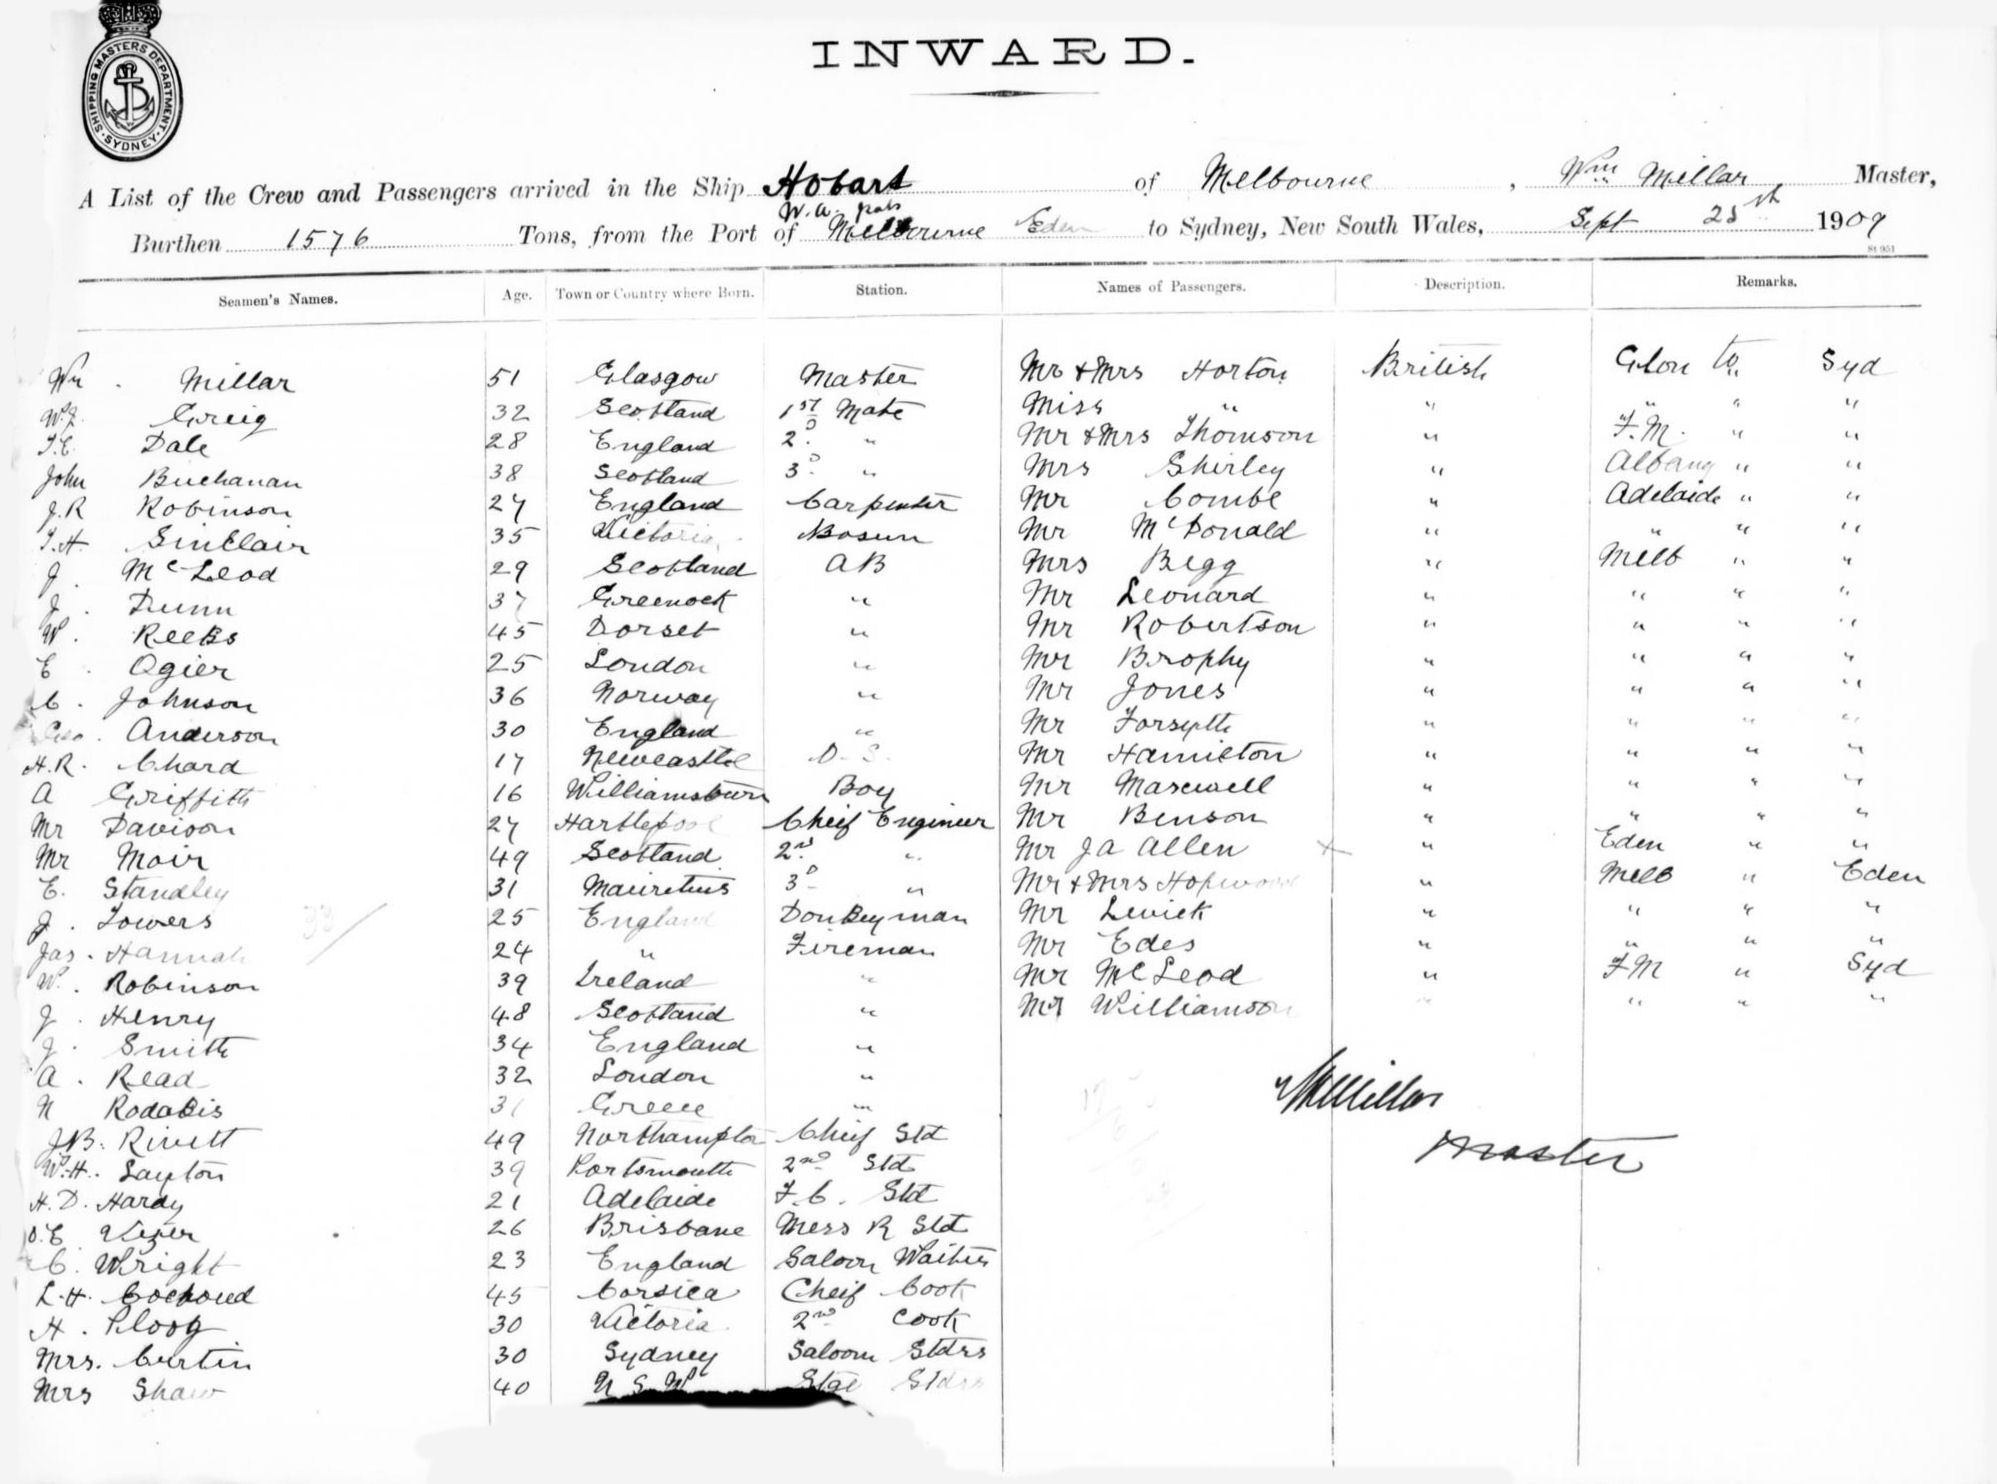 INWARD.
SHIPPING MASTERS DEPARTMENT. SYDNEY.
A List of the Crew and Passengers arrived in the Ship Hobart of Melbourne, Wm Millar, Master,
W.A. pots
Burthen 1576 Tons, from the Port of Melbourne Eden to Sydney, New South Wales, Sept 25th 1909
St 951
Seamen's Names. Age. Town or Country where Born. Station. Names of Passengers. Description. Remarks.
Wm. Millar 51 Glasgow Master Mr & Mrs Horton British Glon to Syd
W.J. Greig 32 Scotland 1st Mate Miss " " " " "
T.E. Dale 28 England 2D " Mr & Mrs Thomson " F.M. " "
John Buchanan 38 Scotland 3D " Mrs Shirley " Albany " "
J.R Robinson 27 England Carpenter Mr Combe " Adelaide " "
T.H. Sinclair 35 Victoria Bosun Mr McDonald " " " "
J. McLeod 29 Scotland AB Mrs Begg " Melb " "
J. Dunn 37 Greenock " Mr Leonard " " " "
W. Reebs 45 Dorset " Mr Robertson " " " "
E. Ogier 25 London " Mr Brophy " " " "
C. Johnson 36 Norway " Mr Jones " " " "
Geo. Anderson 30 England " Mr Forsyth " " " "
H.R. Chard 17 Newcastle O.S. Mr Hamilton " " " "
A Griffith 16 Williamsburn Boy Mr Maxwell " " " "
Mr Davison 27 Hartlepool Cheif Engineer Mr Benson " " " "
Mr Moir 49 Scotland 2nd " Mr J A Allen x " Eden " "
E. Standley 31 Mauretius 3D " Mr & Mrs Hopwood " Melb " Eden
J. Towers 25 England Donkeyman Mr Levick " " " "
Jas. Hannah 24 " Fireman Mr Edes " " " "
W. Robinson 39 Ireland " Mr McLeod " FM " Syd
J. Henry 48 Scotland " Mr Williamson " " " "
J. Smith 34 England "
A. Read 32 London "
N Rodakis 31 Greece "
J.B. Rivett 49 Northampton Cheif Std
W.H. Layton 39 Portsmouth 2nd Std
H.D. Hardy 21 Adelaide F.C. Std
26 Brisbane Mess R Std
C. Wright 23 England Saloon Waiter
L.H. 45 Corsica Cheif Cook
H. Ploog 30 Victoria 2nd Cook
Mrs. Curtin 30 Sydney Saloon Stdrs
Mrs Shaw 40 N S W Stge Stdrs
WMillar
Master